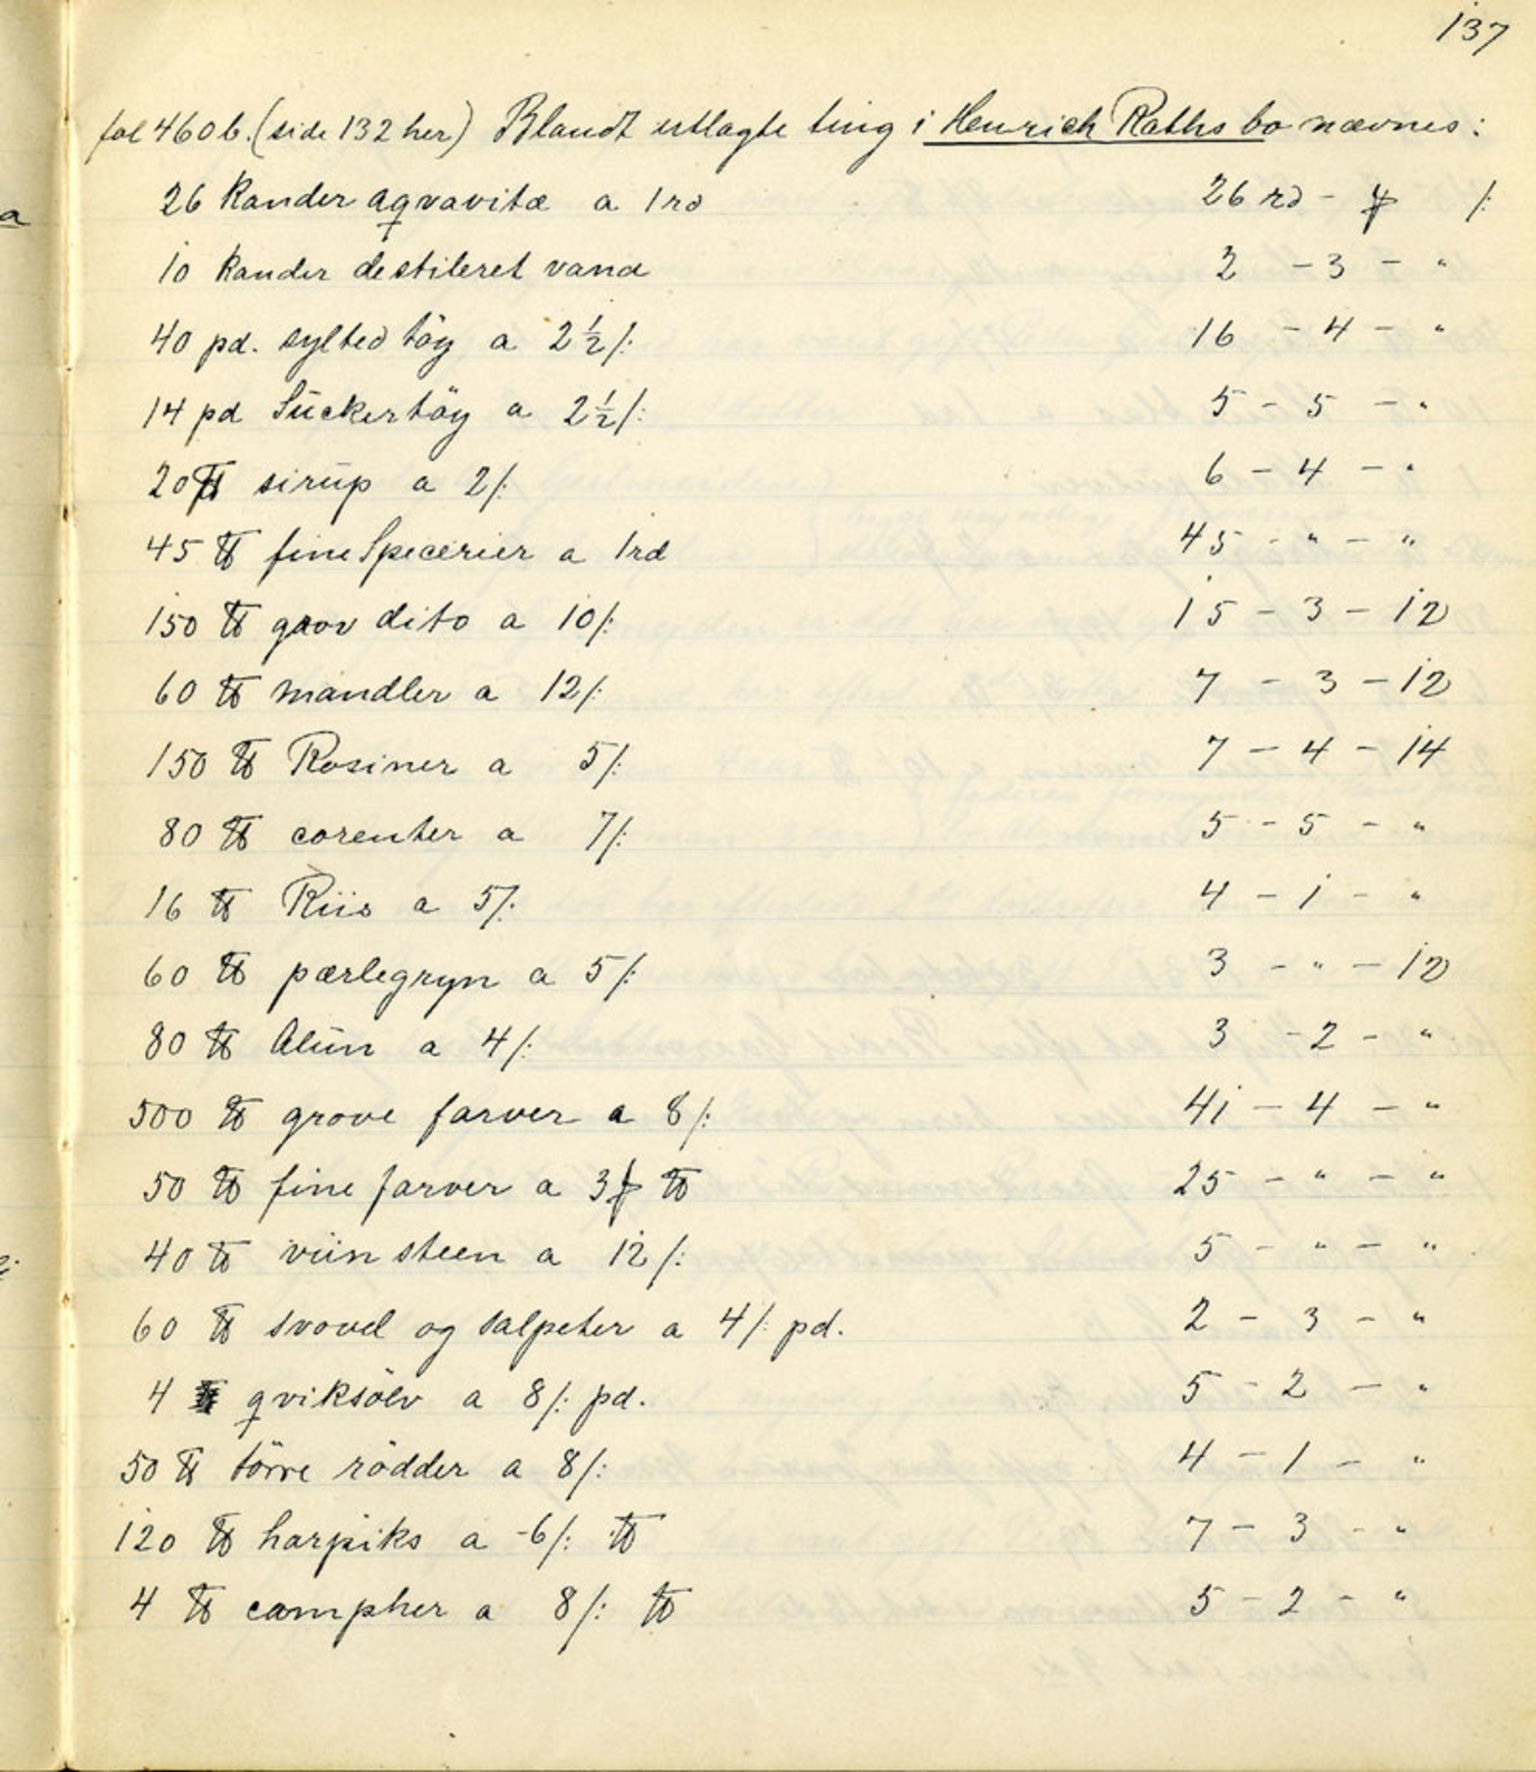 137
fol 460b. (side 132 her) Blandt utlagte ting i Henrich Raths bo nævnes:
26 Kander aqvavitæ a 1 rd 26 rd - ⁄:
10 kander destileret vand 2 - 3 - "
40 pd. sylted töy a 2½ ⁄: 16 - 4 - "
14 pd Sŭckertöy a 2½ ⁄: 5 - 5 - "
20 ℔ sirŭp a 2 ⁄: 6 - 4 - "
45 ℔ fine Specerier a 1rd 45 - " - "
150 ℔ grov dito a 10 ⁄: 15 - 3 - 12
60 ℔ mandler a 12 ⁄: 7 - 3 - 12
150 ℔ Rosiner a 5 ⁄: 7 - 4 - 14
80 ℔ corenter a 7 ⁄: 5 - 5 - "
16 ℔ Riis a 5 ⁄: 4 - 1 - "
60 ℔ pærlegryn a 5 ⁄: 3 - " - 12
80 ℔ Alŭn a 4 ⁄: 3 - 2 - "
500 ℔ grove farver a 8 ⁄: 41 - 4 - "
50 ℔ fine farver a 3 ℔ 25 - " - "
40 ℔ viinsteen a 12 ⁄: 5 - " - "
60 ℔ svovel og salpeter a 4 ⁄: pd. 2 - 3 - "
4 qviksölv a 8 ⁄: pd. 5 - 2 - "
50 ℔ törre rödder a 8 ⁄: 4 - 1 - "
120 ℔ harpiks a 6 ⁄: ℔ 7 - 3 - "
4 ℔ campher a 8 ⁄: ℔ 5 - 2 - "